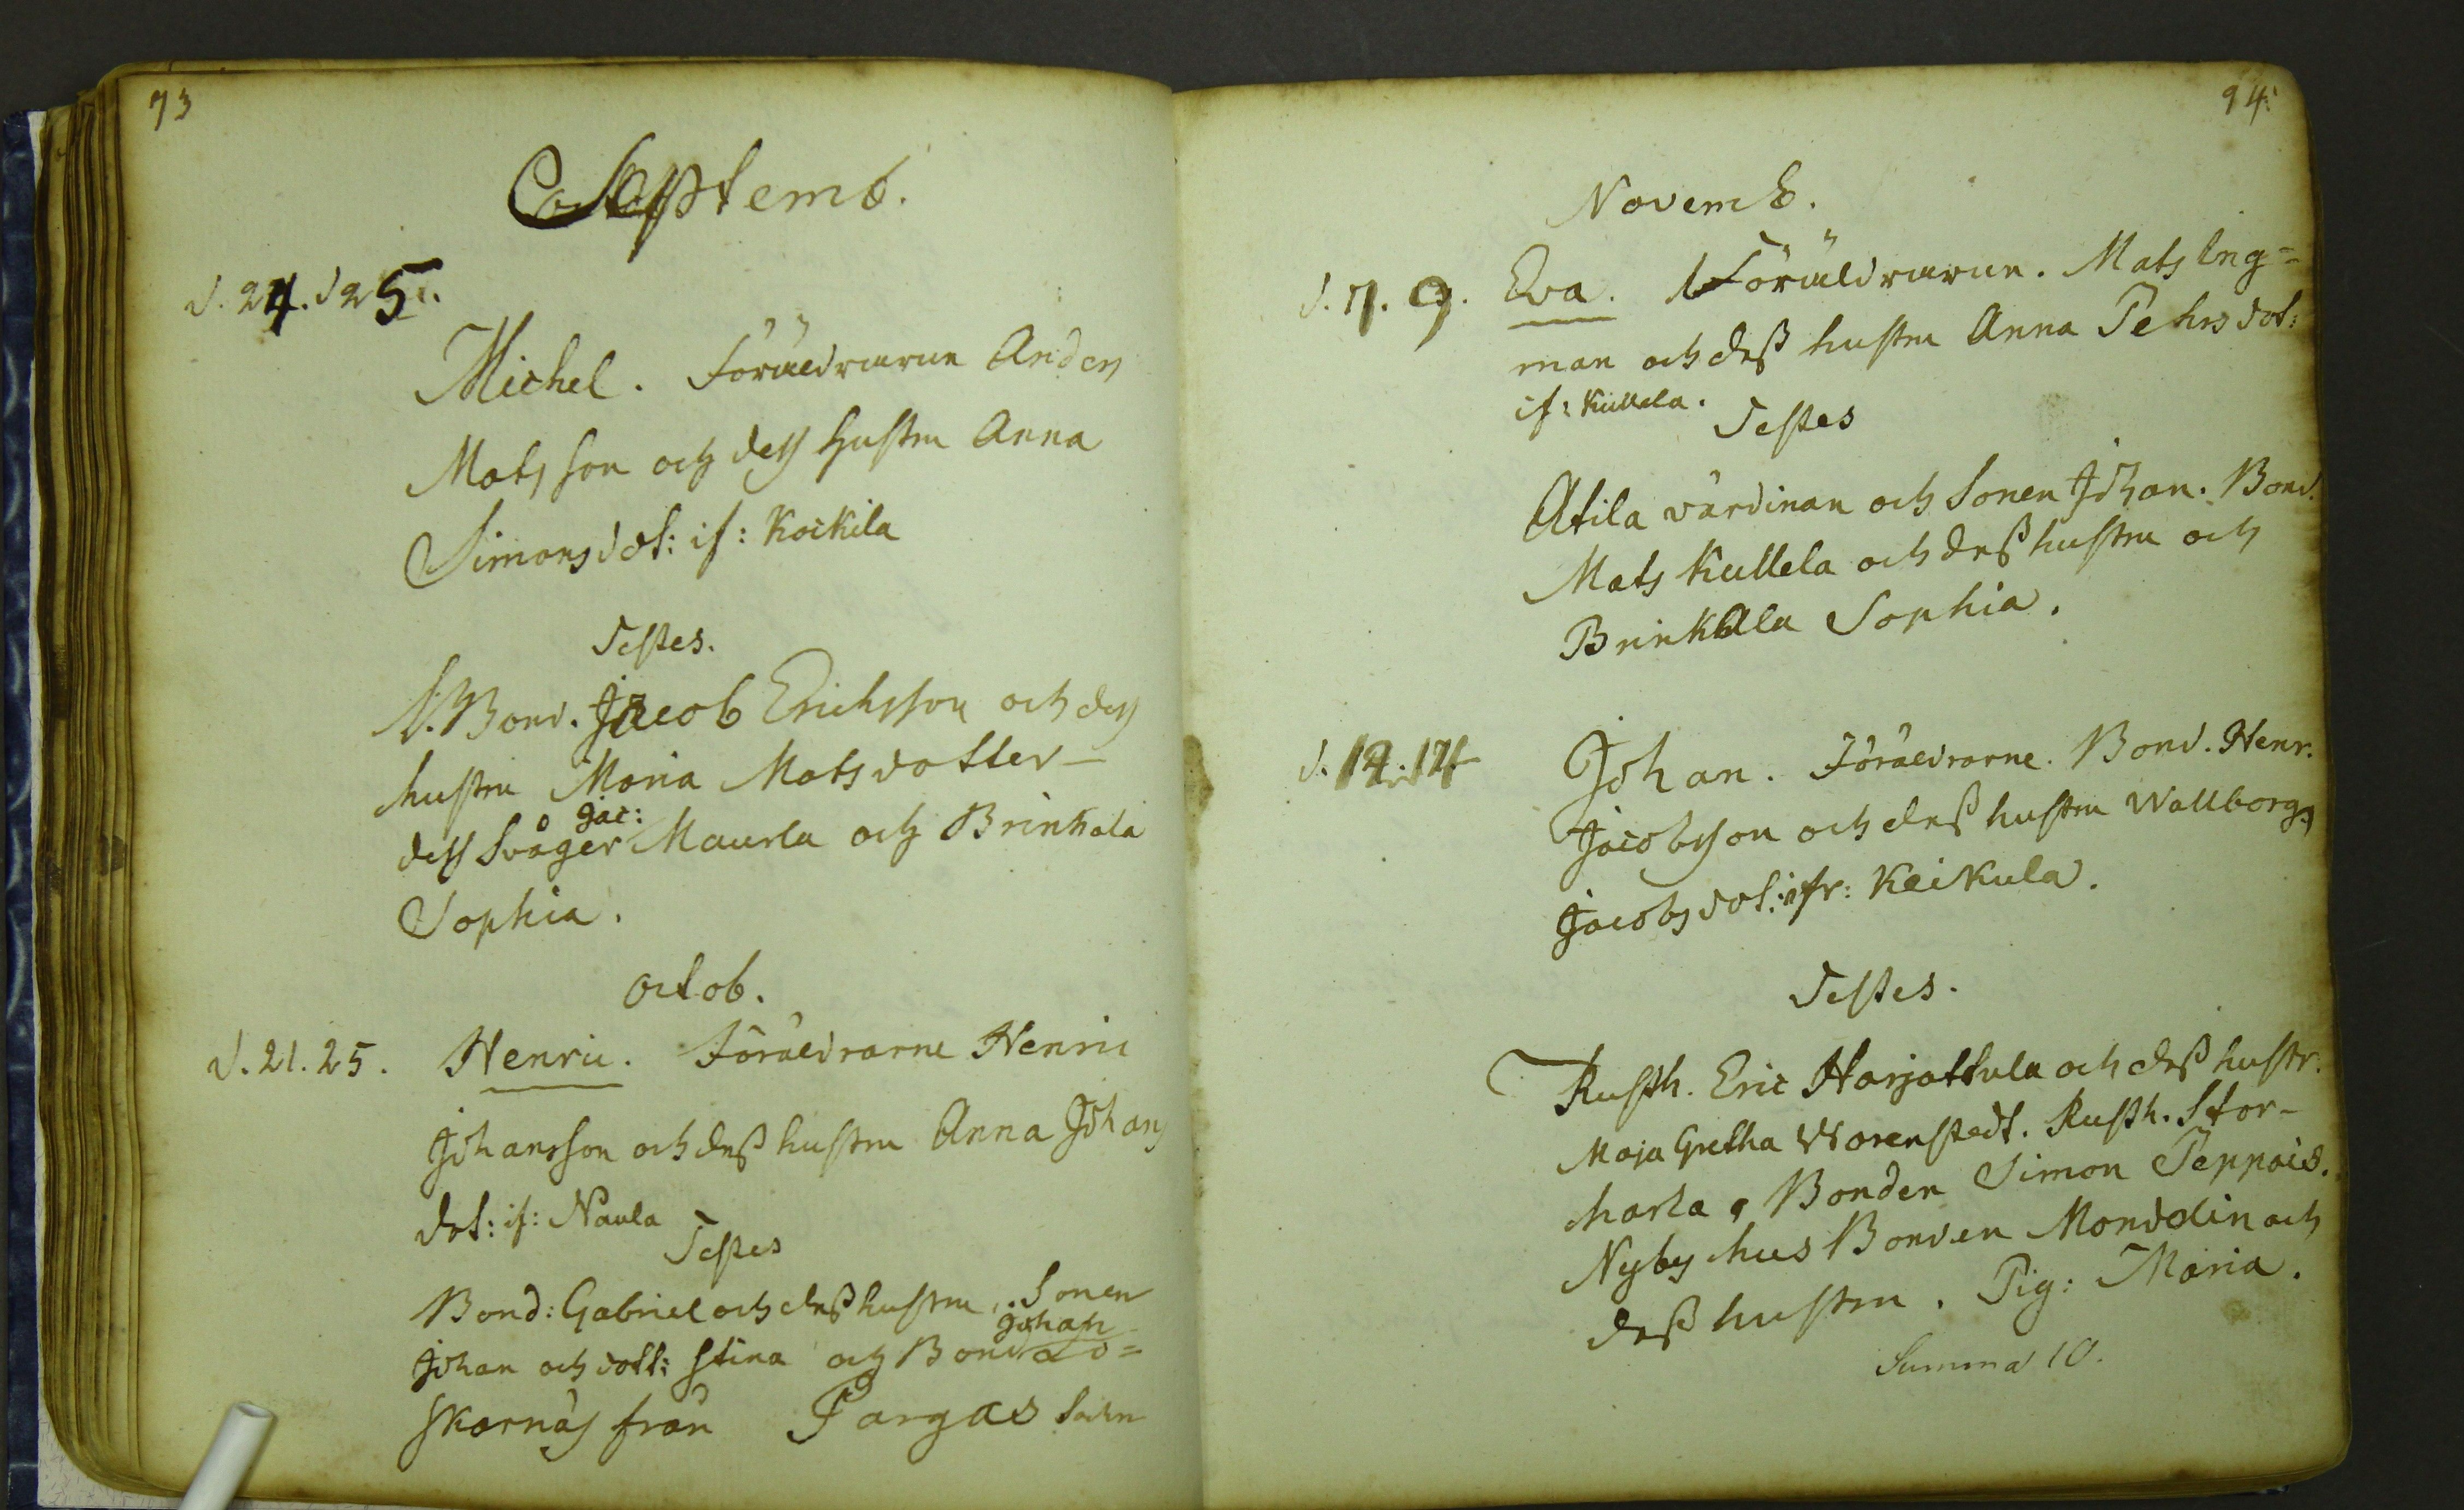 73
Septemb.
d. 24. d 25.
Michel. Föräldrarne Anders
Matsson och dess Hustru Anna
Simonsdot: if: Kockila
Testes.
Bond. Jacob Erichsson och dess
hustru Maria Matsdotter
Jac:
dess Svåger Maurla och Brinkala
Sophia.
Octob.
d. 21. 25. Henric. Föräldrarne Henric
Johansson och dess hustru Anna Johans
dot: if: Naula
Testes
Bond: Gabriel och dess hustru, Sonen
Johan
Johan och dott: Stina och Bond Lo=
skarnäs från Pargas Sokn
94.
Novemb.
d. 7. 9. Eva. Föräldrarne. Mats Eng=
man och dess hustru Anna Pehrsdot:
if: Kullela.
Testes
Atila värdinan och Sonen Johan. Bond.
Mats Kullela och dess hustru och
Brinkala Sophia.
d. 12. 14 Johan. Föräldrarne. Bond. Henr.
Jacobsson och dess hustru Wallborg
Jacobsdot: ifr: Keikula.
Testes.
Rusth. Eric Harjattula och dess hustr:
Maja Gretha Worenstedt. Rusth. Stor-
harla, Bonden Simon Peppois.
Nyby hus Bonden Monddin och
dess hustru. Pig: Maria.
Summa 10.